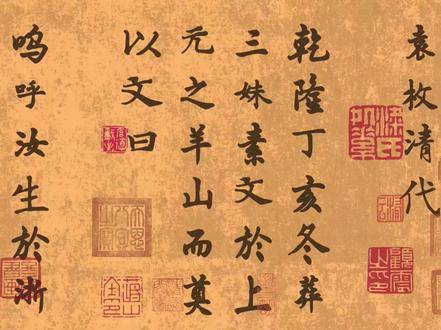 袁枚清代
乾隆丁亥冬葬
三妹素文於上
元之羊山而奠
以文曰
呜呼汝生於浙